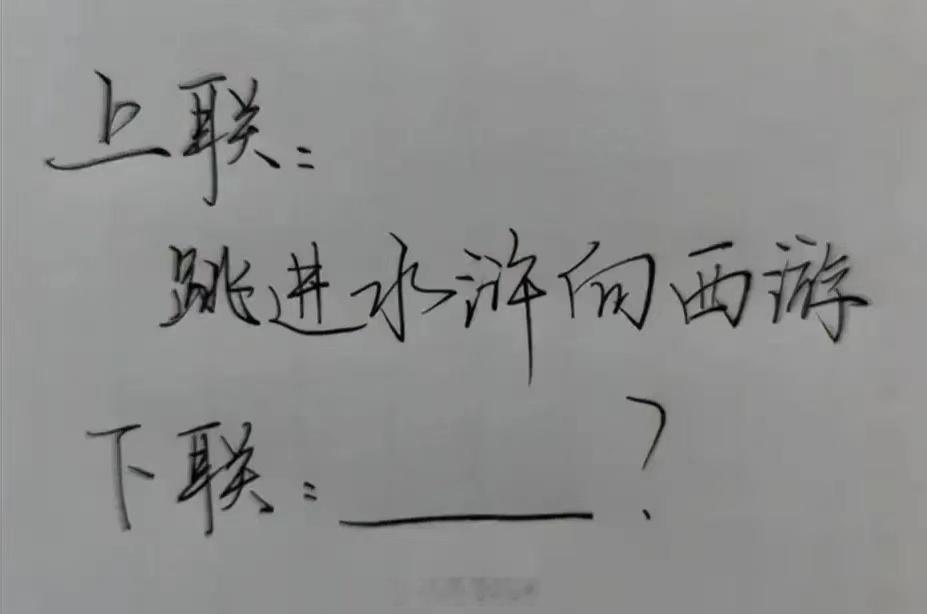 上联:
跳进水浒向西游
下联:______?